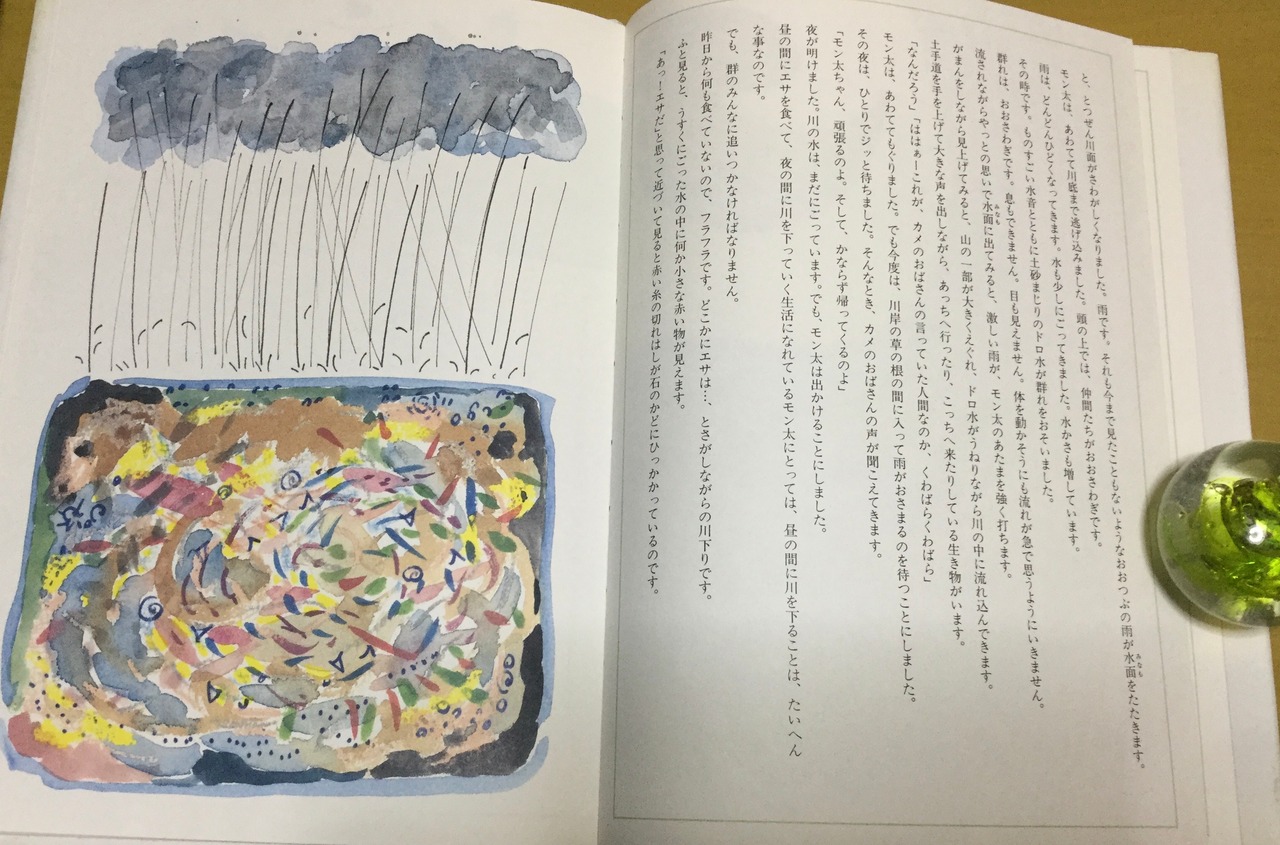 と、とつぜん川面がさわがしくなりました。雨です。それも今まで見たこともないようなおおつぶの雨が水面をたたきます。
モン太は、あわてて川底まで逃げ込みました。頭の上では、仲間たちがおおさわぎです。
雨は、どんどんひどくなってきます。水も少しにごってきました。水かさも増しています。
その時です。ものすごい水音とともに土砂まじりのドロ水が群れをおそいました。
群れは、おおさわぎです。息もできません。目も見えません。体を動かそうにも流れが急で思うようにいきません。
流されながらやっとの思いで水面に出てみると、激しい雨が、モン太のあたまを強く打ちます。
がまんをしながら見上げてみると、山の一部が大きくえぐれ、ドロ水がうねりながら川の中に流れ込んできます。
土手道を手を上げて大きな声を出しながら、あっちへ行ったり、こっちへ来たりしている生き物がいます。
「なんだろう」「ははぁーこれが、カメのおばさんの言っていた人間なのか、くわばらくわばら」
モン太は、あわててもぐりました。でも今度は、川岸の草の根の間に入って雨がおさまるのを待つことにしました。
その夜は、ひとりでジッと待ちました。そんなとき、カメのおばさんの声が聞こえてきます。
「モン太ちゃん、頑張るのよ。そして、かならず帰ってくるのよ」
夜が明けました。川の水は、まだにごっています。でも、モン太は出かけることにしました。
昼の間にエサを食べて、夜の間に川を下っていく生活になれているモン太にとっては、昼の間に川を下ることは、たいへん
な事なのです。
でも、群のみんなに追いつかなければなりません。
昨日から何も食べていないので、フラフラです。どこかにエサは…、とさがしながらの川下りです。
ふと見ると、うすくにごった水の中に何か小さな赤い物が見えます。
「あっ！エサだ」と思って近づいて見ると赤い糸の切れはしが石のかどにひっかかっているのです。